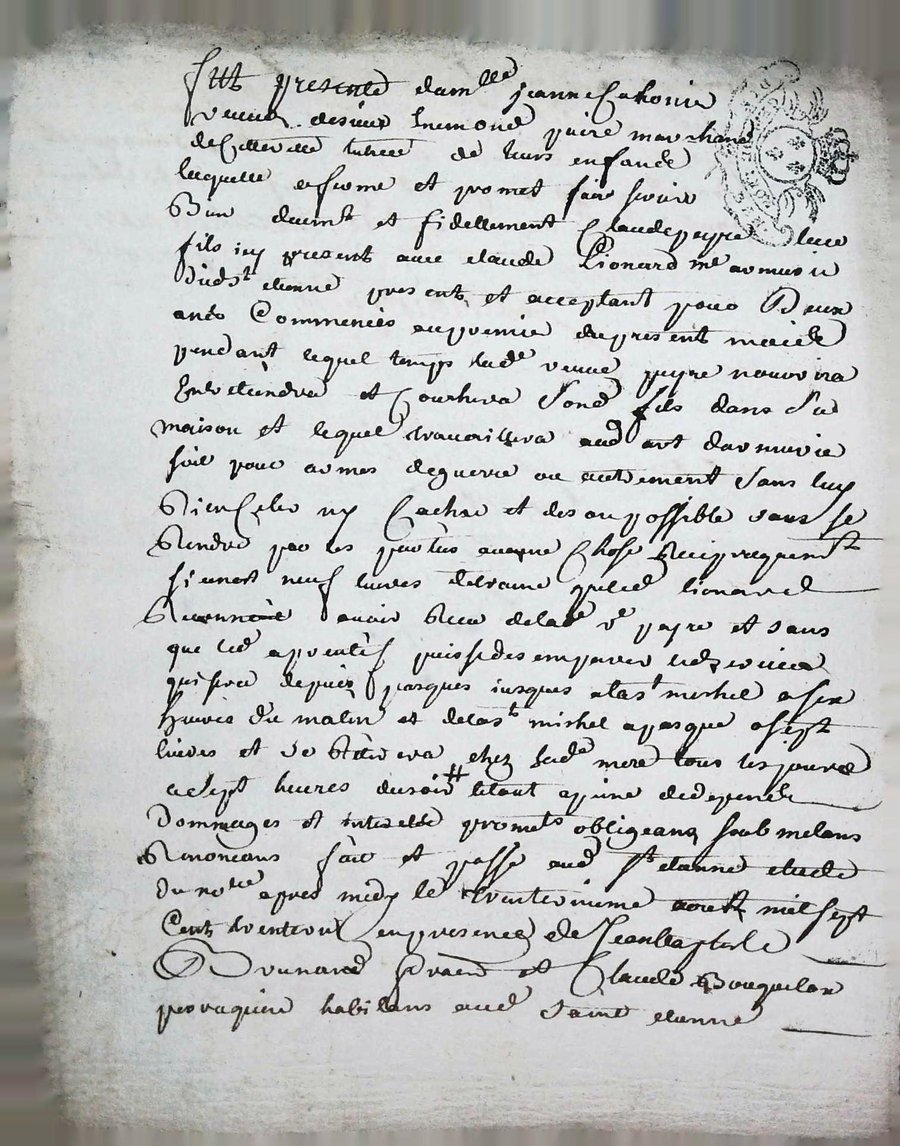 fut presente dam^lle jeanne
veuve de sieur peire marchand
de tutrice de leurs enfands
laquelle afirme et promet faire servir
Bien duem^t et fidellement Claude peyre
fils icy present avec claude Lionard m^e armurie
dud s^t etienne present et acceptant pour Deux
ans Commencés au premie du present mois de
pendant lequel temps lad^e veuve peyre nourrira
Entretiendra et Couchera Son^d fils dans Sa
maison et lequel travaillera aud art d'armurie
soit pour armes de guerre ou autrement Sans luy
Rien Celer ny Cacher et des au possible sans se
Rendre par les parties aucune Chose Reciproquem^t
si ce n'est neuf livres que led lionard
avoir Receu de lad^e v^e peyre et sans
que led^t aprentif puisse desemparer led service
qui sera depuis pasques jusques a la s^t michel a six
heures du matin et de la s^t michel a pasque a sept
heures et se Retirera chez sad^e mere tous les jours
a sept heures du soir le tout a peine de depends
Dommages et interets promet^s obligeans soub melans
Renoncans fait et passé aud S^t etienne etude
du no^re apres midy le aoust mil sept
Cents trente en presence de Jean Baptiste
et Claude
peruquier habitans aud Saint etienne